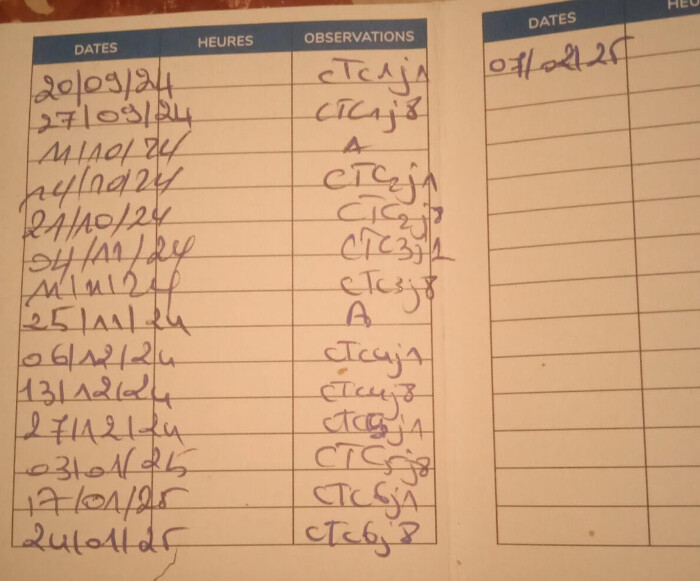 DATES HEURES OBSERVATIONS
20/09/24 CTC1j1
27/09/24 CTC1j8
11/10/24 A
14/10/24 CTC2j1
21/10/24 CTC2j8
04/11/24 CTC3j1
11/11/24 CTC3j8
25/11/24 A
06/12/24 CTC4j1
13/12/24 CTC4j8
27/12/24 CTC5j1
03/01/25 CTC5j8
17/01/25 CTC6j1
24/01/25 CTC6j8
DATES
07/02/25